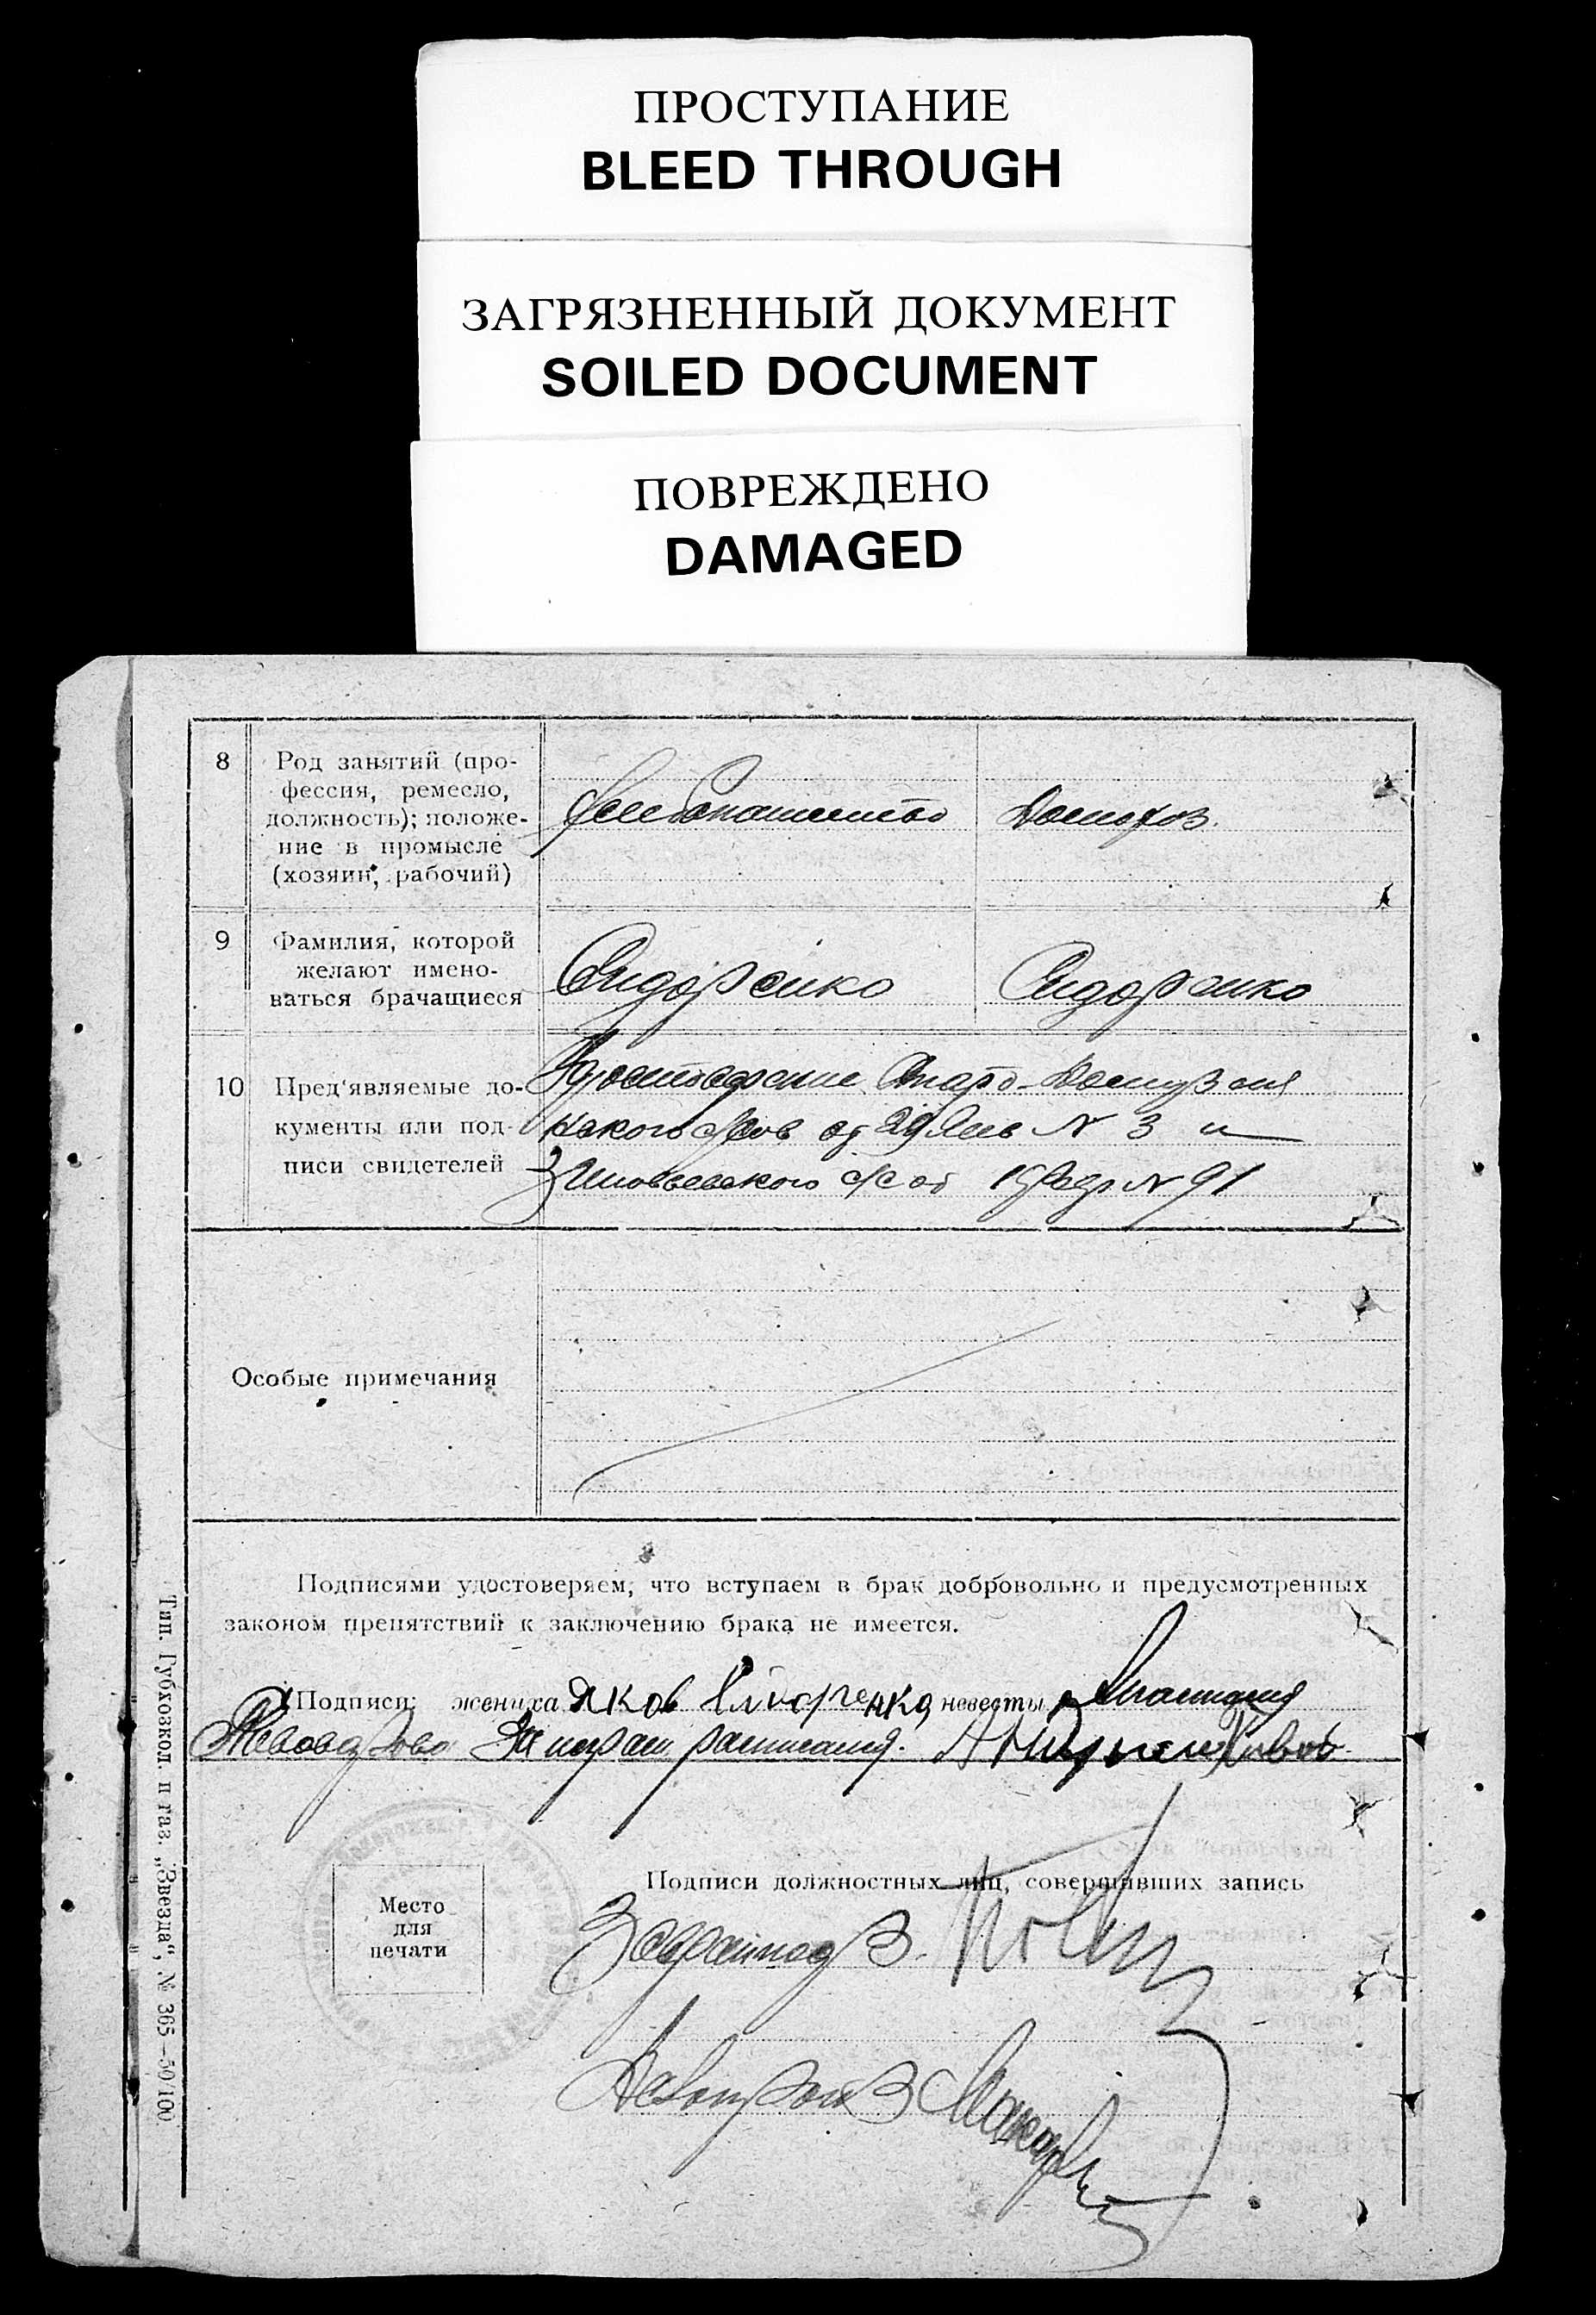 ПРОСТУПАНИЕ
BLEED THROUGH
ЗАГРЯЗНЕННЫЙ ДОКУМЕНТ
SOILED DOCUMENT
ПОВРЕЖДЕНО
DAMAGED
8 Род занятий (про-
фессия, ремесло,
должность); положе-
ние в промысле
(хозяин, рабочий)
Хлебопашество Домохоз.
9 Фамилия, которой
желают имено-
ваться брачащиеся
Сидоренко Сидоренко
10 Пред'являемые до-
кументы или под-
писи свидетелей
Удостоверение Старо-
ского с/сов от 29 Янв N 3 и
Зиновьевского с/с от N 91
Особые примечания
Подписями удостоверяем, что вступаем в брак добровольно и предусмотренных
законом препятствий к заключению брака не имеется.
Подписи: жениха Яков невесты
Место
для
печати
Подписи должностных лиц, совершивших запись
Тип. Губхозкол. п газ. „Звезда“, № 365—50/100